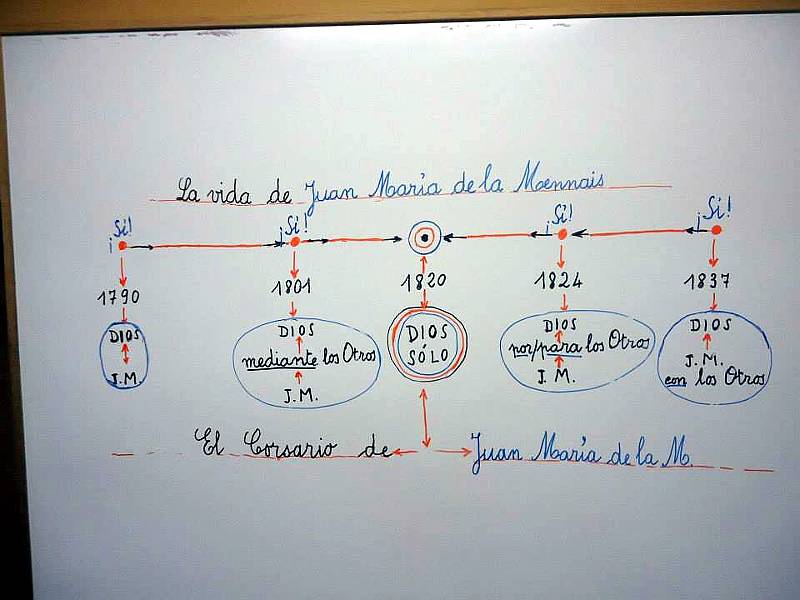 La vida de Juan María de la Mennais
¡Sí! ¡Sí! ¡Sí! ¡Sí!
1790 1801 1820 1824 1837
DIOS
J.M.
DIOS
mediante los Otros
J.M.
DIOS
SÓLO
DIOS
por/para los Otros
J.M.
DIOS
J.M.
con los Otros
El Corsario de Juan María de la M.